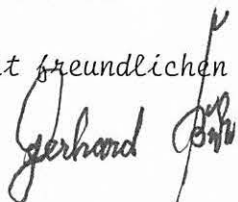 t freundlichen
Gerhard